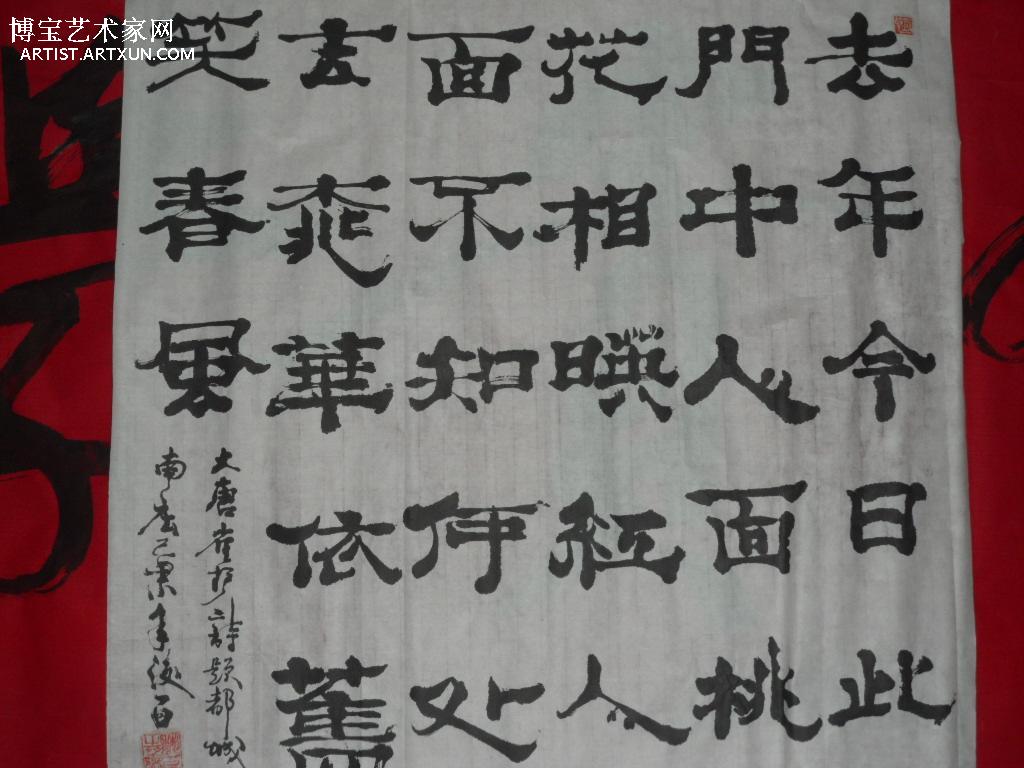 博宝艺术家网
ARTIST.ARTXUN.COM
去年今日此
門中人面桃
花相暎紅人
面不知何处
去桃華依舊
笑春風
大唐崔护詩題都城
南庄己年